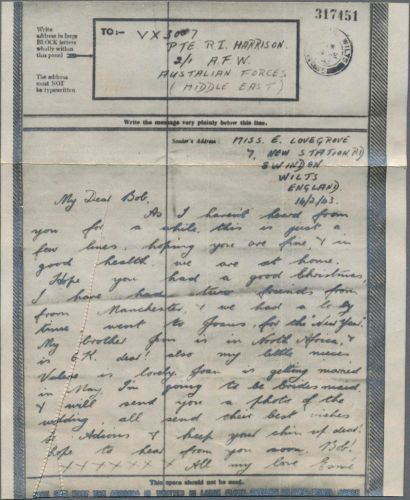 317451
Write
address in large
BLOCK letters
wholly within
this panel
The address
must NOT
be typewritten
TO:-
VX
PTE. R.I. HARRISON.
2/1 A.F.W.
AUSTALIAN FORCES
(MIDDLE EAST)
WILTS
Write the message very plainly below this line.
Sender's Address:
MISS. E. LOVEGROVE
7, NEW STATION RD
SWINDON
WILTS
ENGLAND
14/2/43.
My Dear Bob.
As I haven't heard from
you for a while, this is just a
few lines, hoping you are fine, & in
good health we are at home.
Hope you had a good Christmas,
I have had two friends from
from Manchester, & we had a
time went to Joans, for the "New Year".
My brother is in North Africa, &
is O.K. dear! also my little nieces
is lovely. Joan is getting married
in May, I'm going to be bridesmaid,
& will send you a photo of the
wedding all send their best wishes
& keep your chin up dear.
hope to hear from you soon. Bob!
xxxxxxx All my love
This space should not be used.